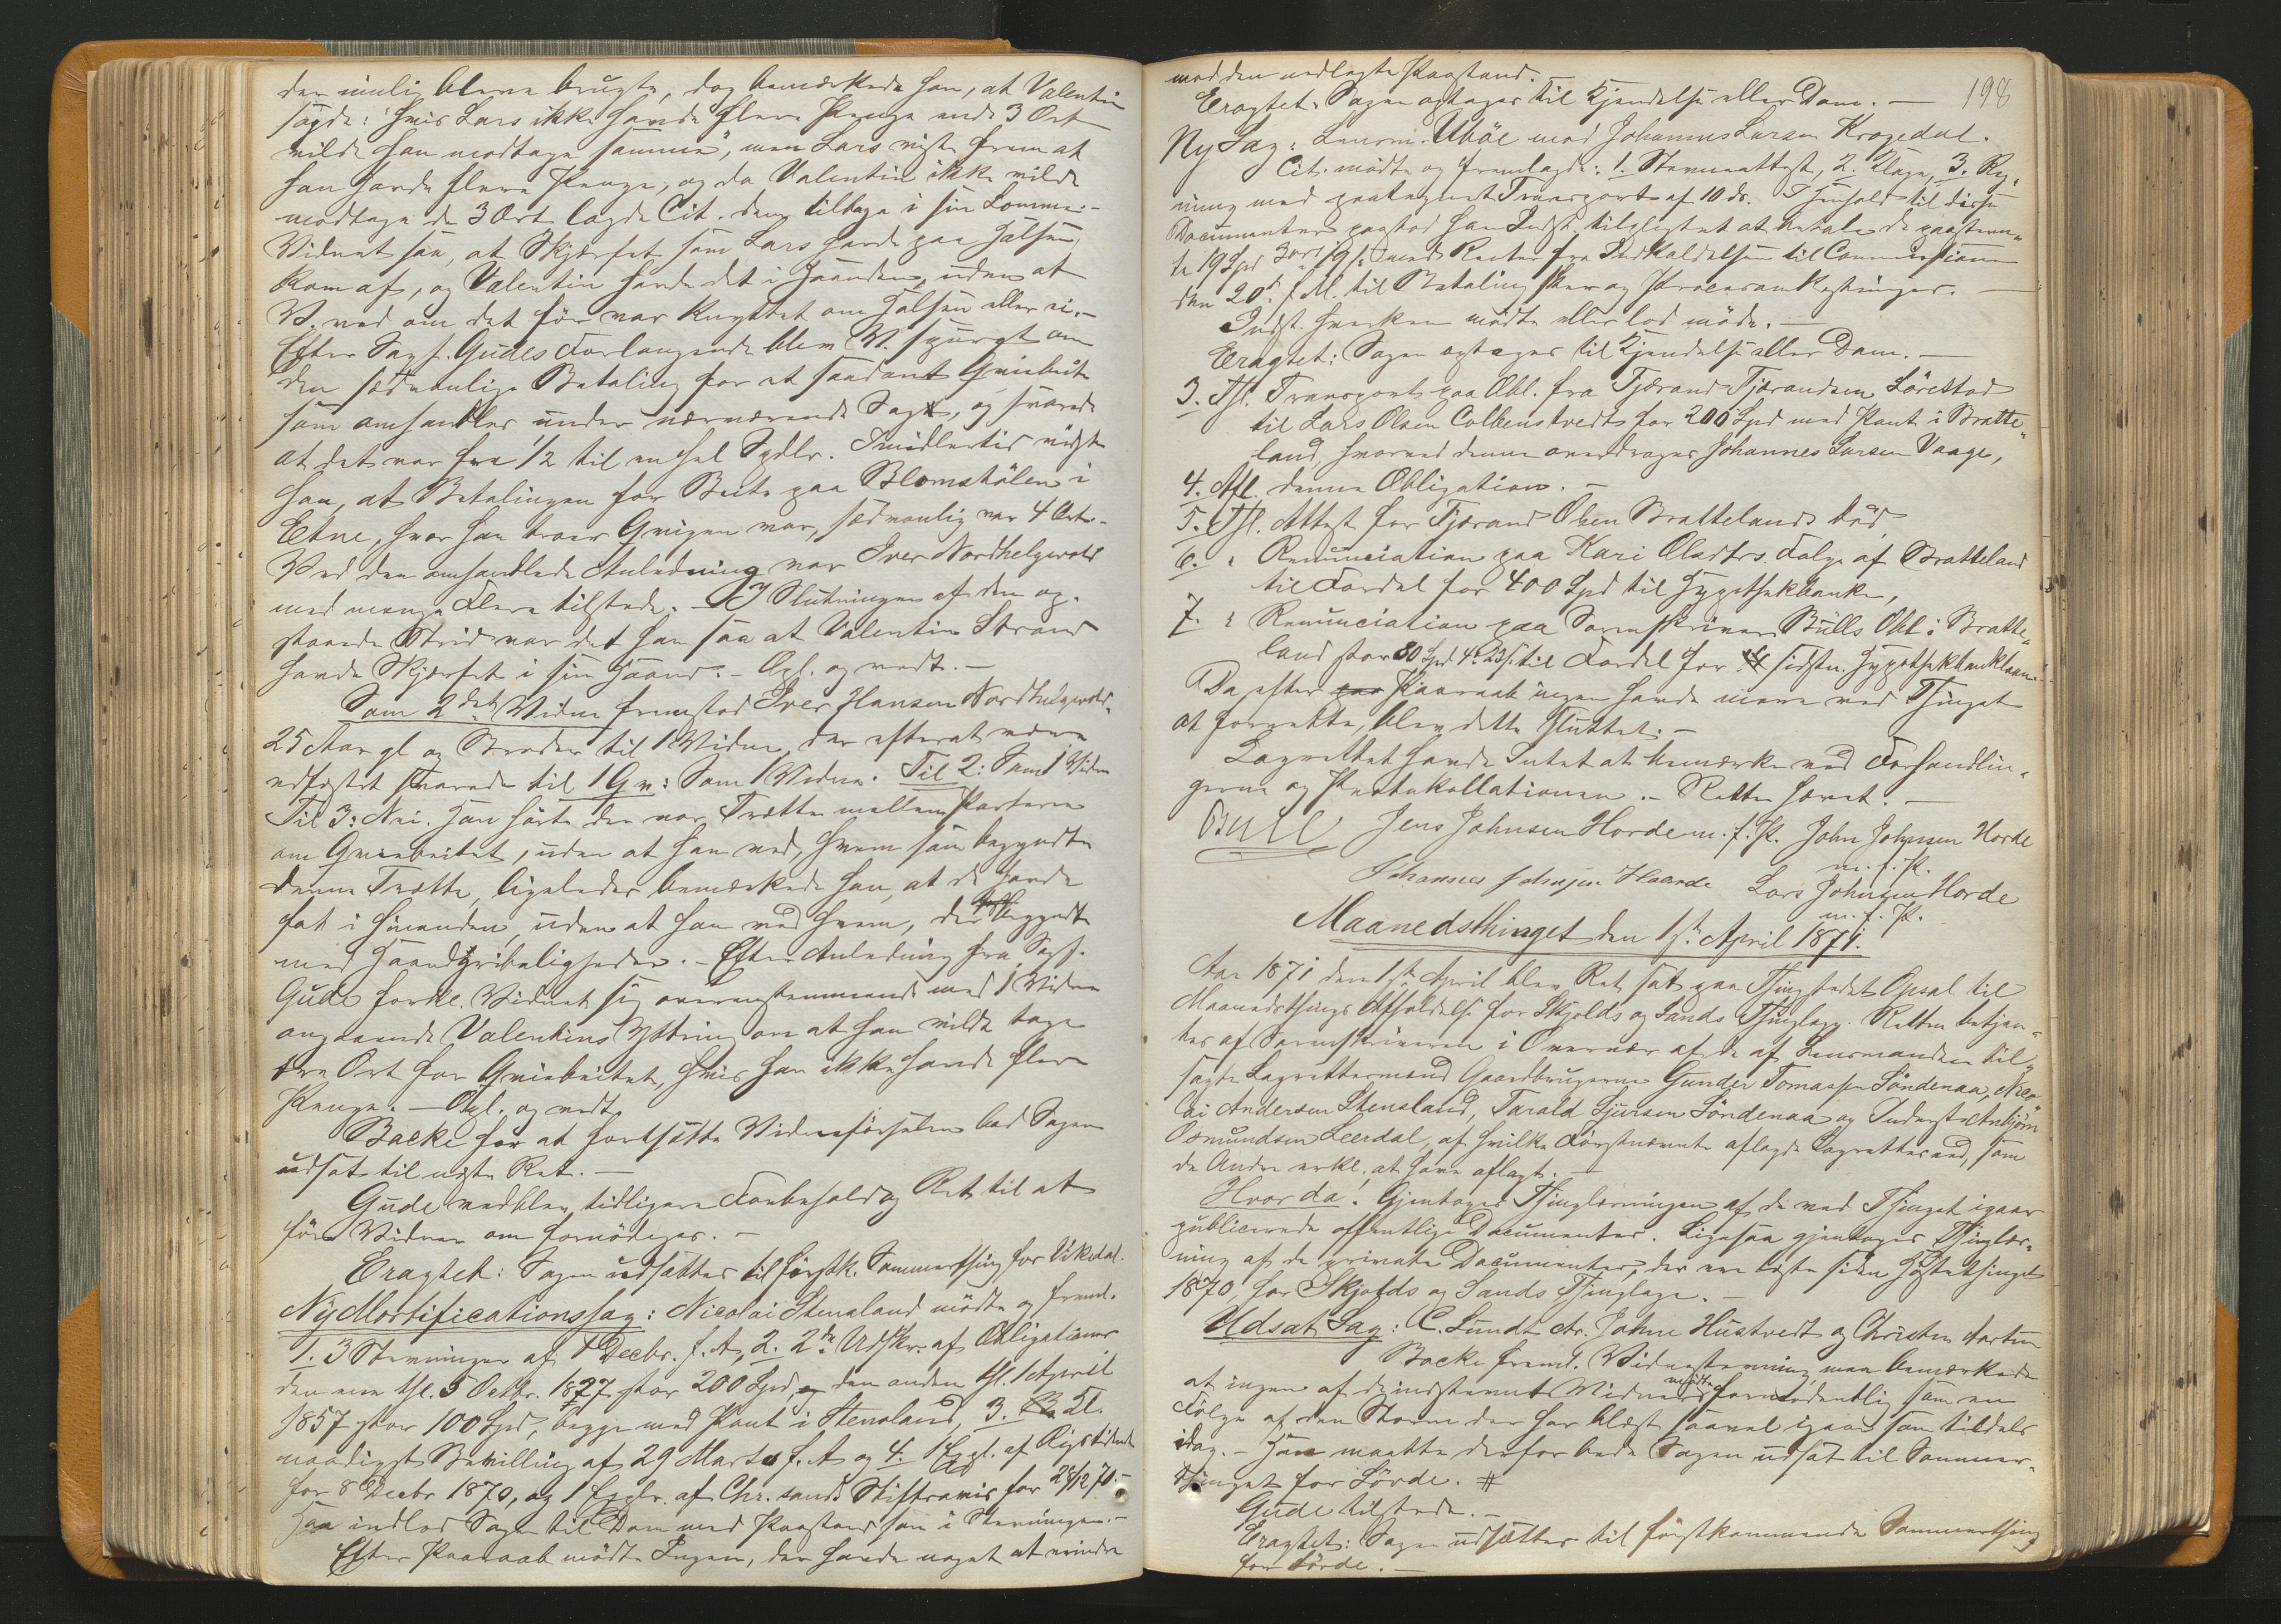 der mulig bleve brugte, dog bemærkede han, at Valentin
sagde: "hvis Lars ikke havde flere Penge end 3 Ort
vilde han modtage samme", men Lars viste frem at
han havde flere Penge, og da Valentin ikke vilde
modtage de 3 Ort lagde Cit. dem tilbage i sin Lomme.-
Vidnet saa, at Skjærfet som Lars havde paa Halsen,
kom af, og Valentin havde det i Haanden, uden at
V. ved om det før var knyttet om Halsen eller ei.-
Efter Sagf. Gudes Forlangende blev V. spurgt om
den sædvanlige Betaling for et saadant Griebeite
som omhandles under nærværende Sag, og svarede
at det var fra 1/2 til en hel Spdlr. Imidlertid vidste
han, at Betalingen for Beite paa Blomstølen i
Etne, hvor han troer Grisen var, sædvanlig var 4 Ort.-
Ved den omhandlede Anledning var Iver Nordhelgevold
med mange Flere tilstede. - I Slutningen af den op-
staaede Strid var det han saa at Valentin Strand
havde Skjærfet i sin Haand. - Opl. og vedt. -
Som 2det Vidne fremstod Iver Hansen Nordhelgevold,
25 Aar gl og Broder til 1 Vidne, der efterat være
edfæstet svarede til 1 Gn: Som 1 Vidne. Til 2: Som 1 Vidne
Til 3: Nei. Han hørte der var Trætte mellem Parterne
om Griebeitet, uden at han ved, hvem som begyndte
denne Trætte, ligeledes bemærkede han, at de havde
fat i hinanden, uden at han ved hvem, der begyndte
med Haandgribeligheder. - Efter Anledning fra Sagf.
Gude forkl. Vidnet sig overensstemmende med 1 Vidne
angaaende Valentins Yttring om at han vilde tage
tre Ort for Griebeitet, hvis han ikke havde flere
Penge. - Opl. og vedt.
Backe for at fortsætte Vidneførselen bad Sagen
udsat til næste Ret. -
Gude vedblev tidligere Forbehold og Ret til at
føre Vidner om fornødiges. -
Eragtet: Sagen udsættes til førstk. Sommerthing for Vikedal.
Ny Mortificationssag: Nicolai Stensland mødte og freml.
1. 3 Stevninger af 1 Decbr. f. A, 2. 2de Udskr. af Obligationer
den ene thl. 5 Octbr. 1827 stor 200 Spd, og den anden thl. 1 April
1857 stor 100 Spd, begge med Pant i Stensland, 3. Al.
naadigst Bevilling af 29 Marts f. A og 4. 1 Expl. af Rigstidende
for 8 Decbr 1870, og 1 Explr. af Chr.sands Stiftsavis for 28/12 70.-
Han indlod Sagen til Dom med Paastand som i Stevningen.-
Efter Paaraab mødte Ingen, der havde noget at erindre
198
mod den nedlagte Paastand.
Eragtet: Sagen optages til Kjendelse eller Dom. -
Ny Sag: Lensm. Ubøe mod Johannes Larsen Krogedal.
Cit. mødte og fremlagde: 1. Stevneattest, 2. Klage, 3. Reg-
ning med paategnet Transport af 10 ds. I Henhold til disse
Documenter paastod han Indst. tilpligtet at betale de paastevn-
te 19 Spd 3 ort 19 s. med Renter fra Indkaldelsen til Commissionen
den 20de f. M. til Betaling sker og Procesomkostninger. -
Indst. hverken mødte eller lod møde. -
Eragtet: Sagen optages til Kjendelse eller Dom. -
3. Thl. Transport paa Obl. fra Tjærand Tjærandsen Lørestad
til Lars Olsen Colbenstvedt for 200 Spd med Pant i Bratte-
land, hvorved denne overdrages Johannes Larsen Vaage,
4. Afl. denne Obligation. -
5. Thl. Attest for Tjærand Olsen Brattelands Død,
6. " Renunciation paa Kari Olsdtrs. Følge af Bratteland
til Fordel for 400 Spd til Hypothekbanken,
7. " Renunciation paa Sorenskriver Bulls Obl. i Bratte-
land stor 80 Spd 4 o 23 s. til Fordel for sidstn. Hypothekbanklaan.-
Da efter Paaraab ingen havde mere ved Thinget
at forrette, blev dette sluttet. -
Lagrettet havde Intet at bemærke ved Forhandlin-
gerne og Protokollationen. - Retten hævet. -
Bull Jens Johnsen Horde m. f. P. John Johnsen Horde
m. f. P.
Johannes Johnsen Haarde Lars Johnsen Horde
m. f. P.
Maanedsthinget den 1ste April 1871.
Aar 1871 den 1ste April blev Ret sat paa Thingstedet Opsal til
Maanedsthings Afholdelse for Skjolds og Sands Thinglag. Retten betjen-
tes af Sorenskriveren i Overvær af de af Lensmanden til-
sagte Lagrettesmænd Gaardbrugerne Gunder Tomassen Søndenaa, Nico-
lai Andersen Stensland, Tarald Sjursen Søndenaa og Inderst Anbjørn
Osmundsen Leerdal, af hvilke Førstnævnte aflagde Lagretteseed, som
de Andre erkl. at have aflagt. -
Hvor da: Gjentoges Thinglæsningen af de ved Thinget igaar
publicerede offentlige Documenter. Ligesaa gjentoges Thinglæs-
ning af de private Documenter, der ere læste siden Høstethinget
1870, for Skjolds og Sands Thinglage. -
Udsat Sag: C. Lundt ctr. Johne Hustvedt og Christen Aartun
Backe freml. Vidnestevning, men bemærkede
at ingen af de indstevnte Vidner mødte formodentlig som en
Følge af den Storm der har blæst saavel igaar som tildels
idag. - Han maatte derfor bede Sagen udsat til Sommer-
thinget for Førde. #
Gude tilstede. -
Eragtet: Sagen udsættes til førstkommende Sommerthing
for Førde. -